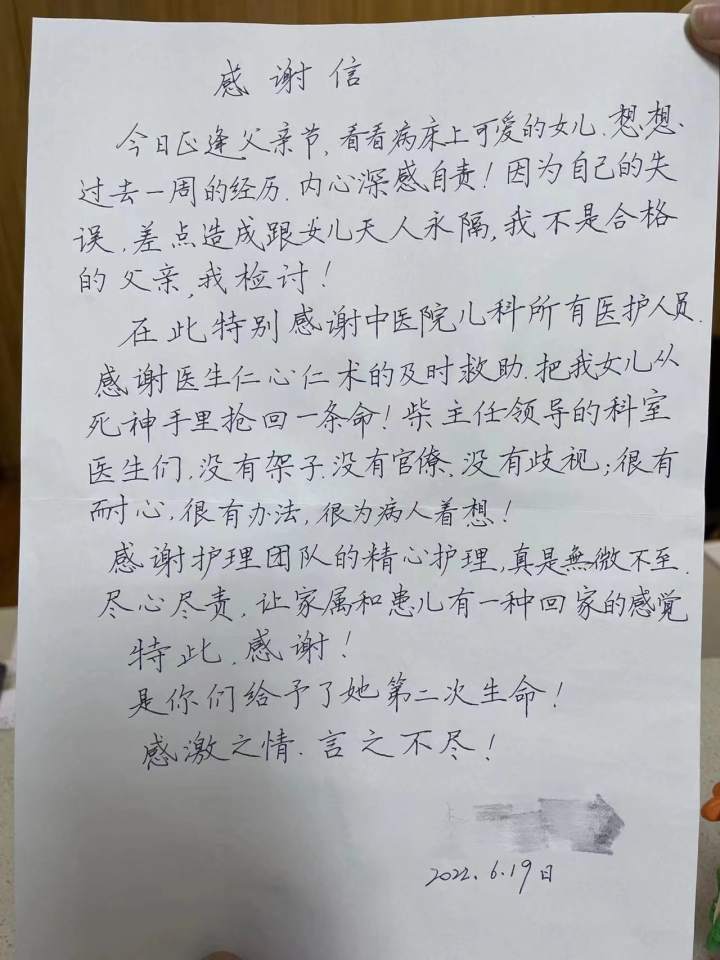 感谢信
今日正逢父亲节,看看病床上可爱的女儿.想想.
过去一周的经历.内心深感自责!因为自己的失
误,差点造成跟女儿天人永隔,我不是合格
的父亲,我检讨!
在此特别感谢中医院儿科所有医护人员.
感谢医生仁心仁术的及时救助.把我女儿从
死神手里抢回一条命!柴主任领导的科室
医生们,没有架子.没有官僚、没有歧视;很有
耐心,很有办法,很为病人着想!
感谢护理团队的精心护理,真是無微不至.
尽心尽责.让家属和患儿有一种回家的感觉
特此.感谢!
是你们给予了她第二次生命!
感激之情.言之不尽!
2022.6.19日